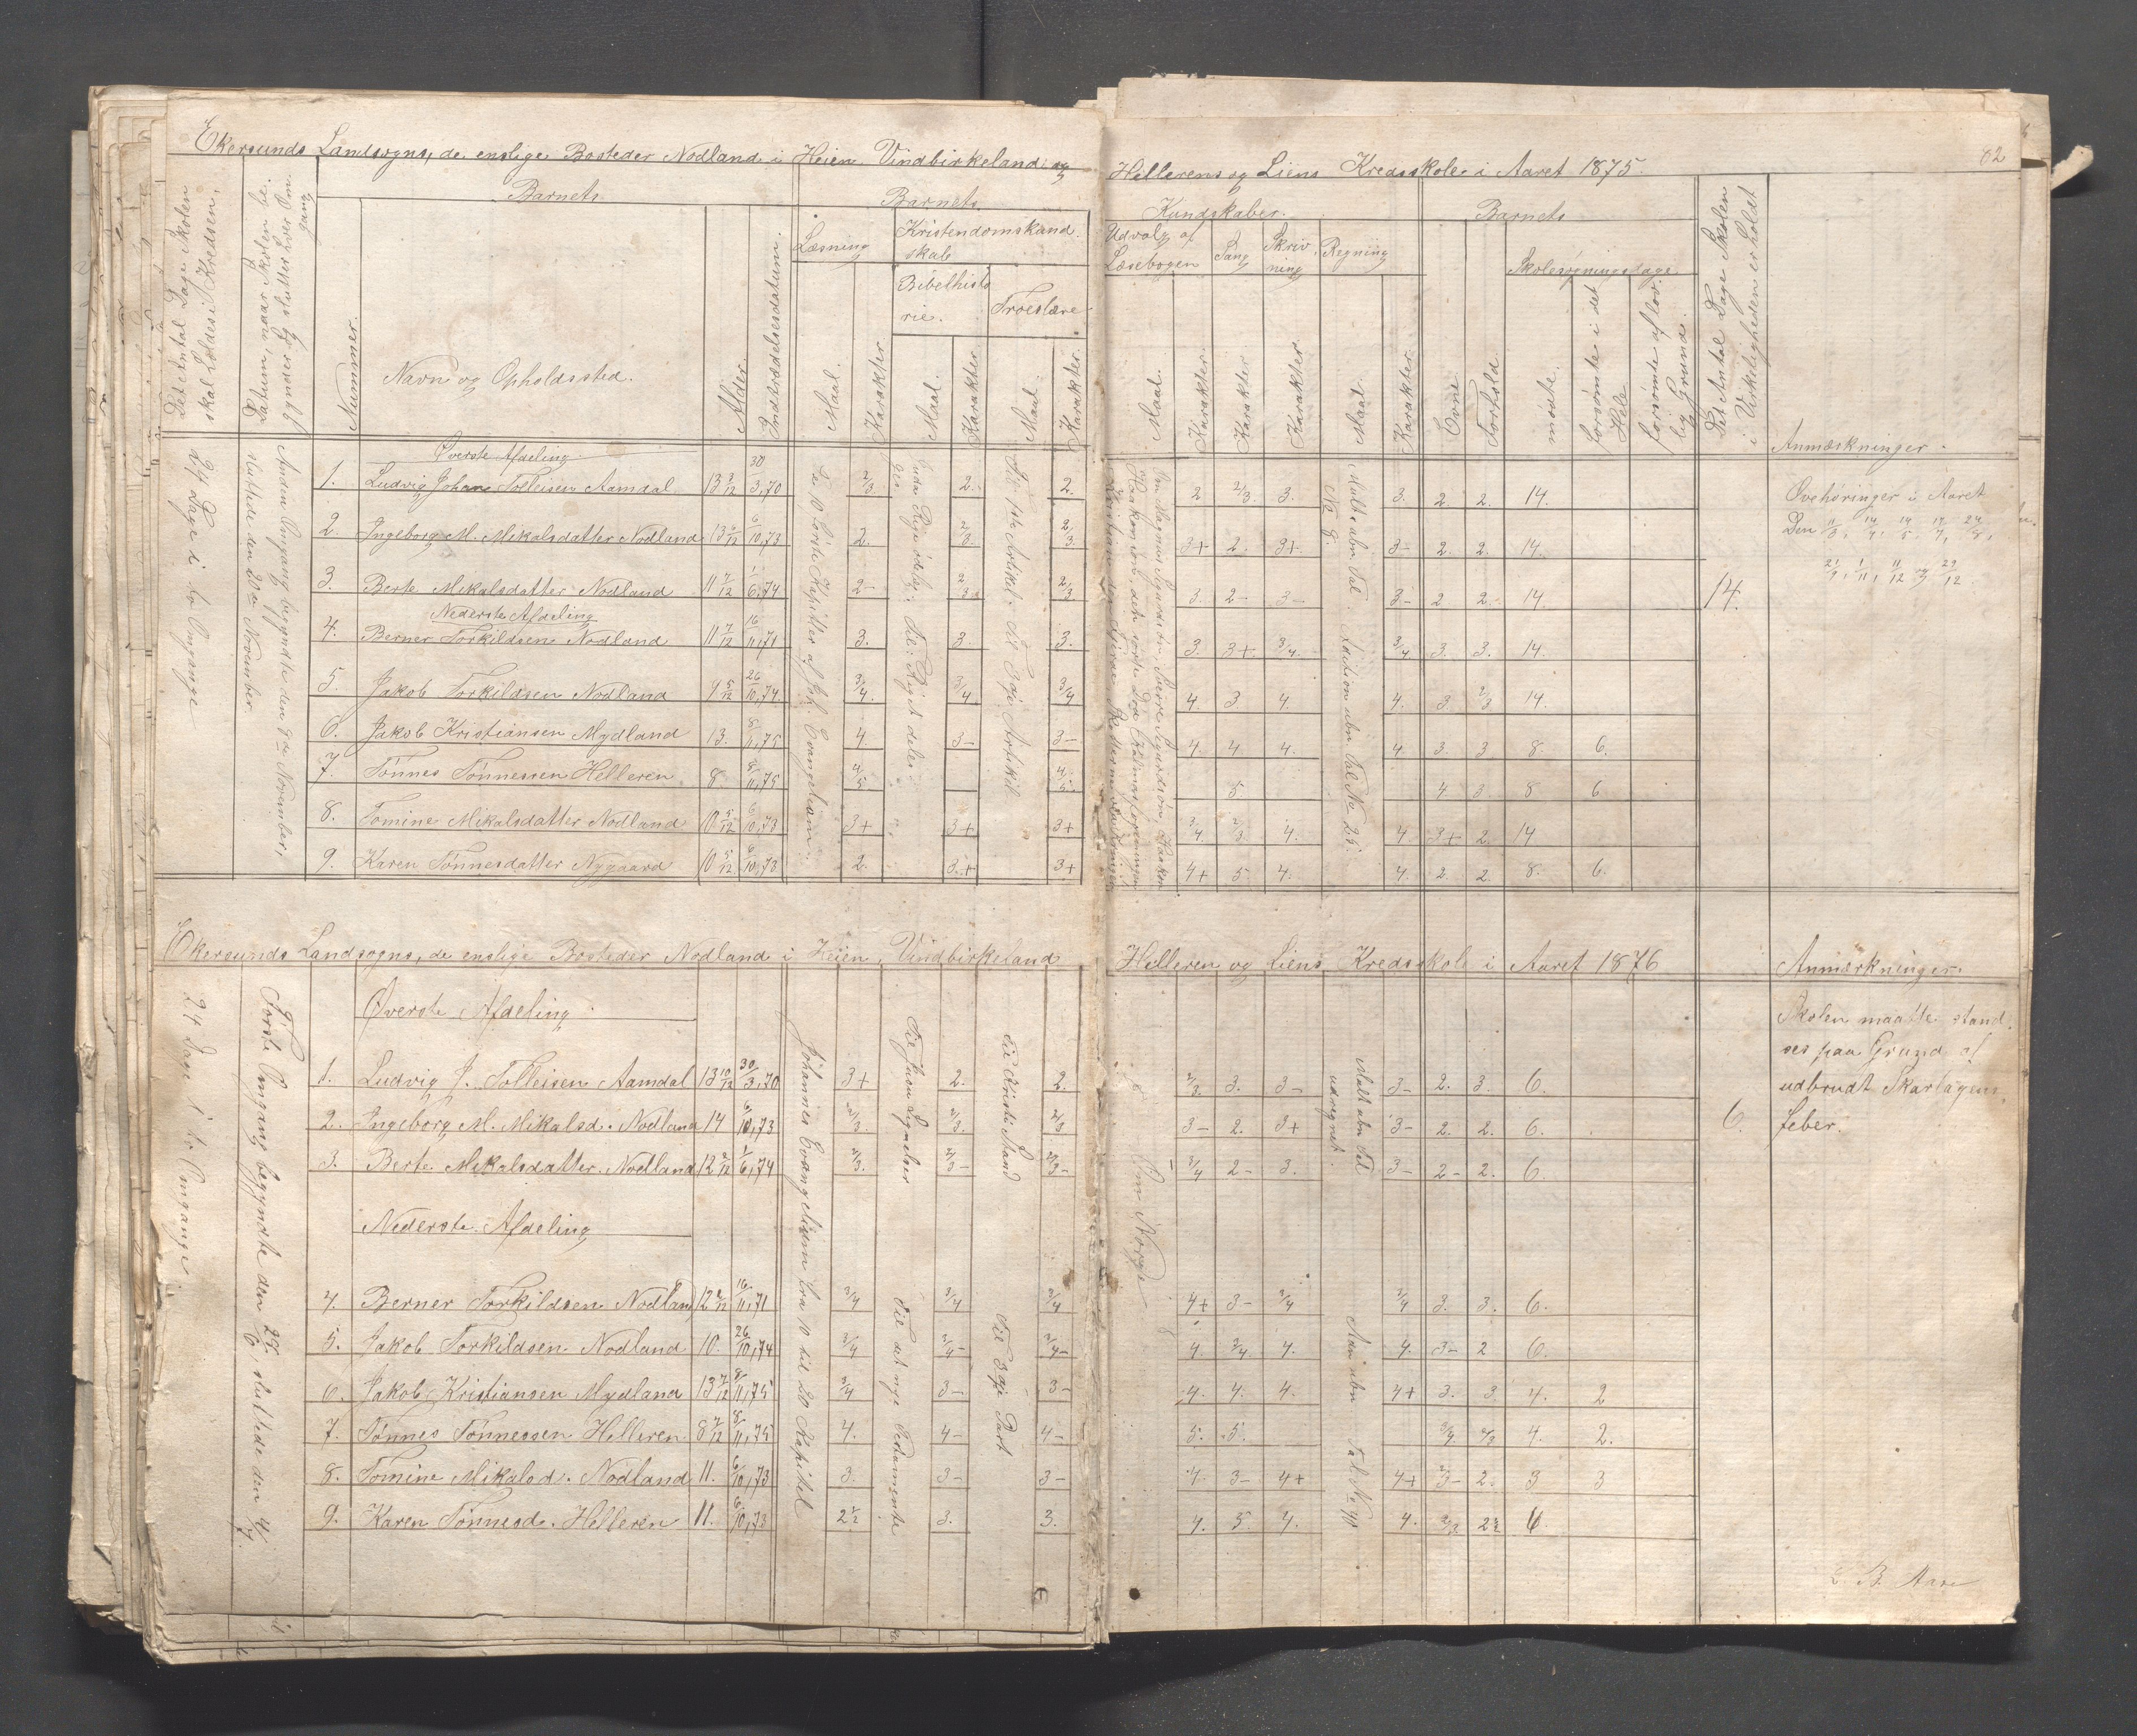 Ekersunds Landsogns, de enslige Bosteder Nodland i Heien Vindbirkeland og
Hellerens og Liens Kredsskole i Aaret 1875.
82
Det Antal Dage Skolen skal holdes i Kredsen,
Datum, naar Skolen begynder og slutter hver Omgang
Barnets
Nummer.
Navn og Opholdssted.
Alder.
Indtrædelsesdatum.
Barnets
Læsning
Kristendomskundskab
Bibelhistorie.
Troeslære
Maal. Karakter. Maal. Karakter. Maal. Karakter.
Kundskaber.
Udvalg af Læsebogen
Sang
Skrivning
Regning
Maal. Karakter. Karakter. Karakter. Maal. Karakter.
Barnets
Evne
Forhold.
Skolesøgningsdage.
mødte.
forsømte i det Hele
forsømte af lovlig Grund.
Det Antal Dage Skolen i Virkeligheden er holdt
Anmærkninger.
24 Dage i to Omgange
Anden Omgang begyndte den 9de November, sluttede den 20de November.
Øverste Afdeling
1. Ludvig Johan Tolleisen Aamdal 13 3/12 30/3,70 2/3. 2. 2. 2 2/3. 3. 3. 2 2. 14.
2. Ingeborg M. Mikalsdatter Nodland 6/10,73 2. 2/3. 2/3. 3+ 2. 3+ 3- 2. 2. 14.
3. Berte Mikalsdatter Nodland 11 7/12 1/6,74 2- 2/3. 2/3. 3. 2- 3- 3- 2 2. 14.
Nederste Afdeling
4. Berner Torkildsen Nodland 11 7/12 16/11,71 3. 3. 3. 3. 3+. 3/4. 3/4 3. 3. 14.
5. Jakob Torkildsen Nodland 9 5/12 26/10,74 3/4. 3/4. 3/4 4. 3. 4. 4. 3. 2/3 14.
6. Jakob Kristiansen Mydland 13. 8/11,75 4. 3- 3- 4. 4. 4. 4 3. 3 8. 6.
7. Tønnes Tønnessen Helleren 8. 8/11,75 4/5. 4/5. 5. 4 3 8 6
8. Tomine Mikalsdatter Nodland 10 5/12 6/10,73 3+ 3+ 3+ 3/4 2/3. 4. 4. 3+ 2. 14
9. Karen Tønnesdatter Nygaard 10 5/12 6/10,73 2. 3.+ 3+ 4+ 5. 4. 4. 2. 2. 8. 6.
Til 1ste Artikel. Til 3die Artikel
14.
i Aaret
Den 11/3, 14/4, 14/5, 17/7, 24/8,
21/9, 1/11, 11/12 og 29/12.
Ekersunds Landsogns, de enslige Bosteder Nodland i Heien, Vindbirkeland
Helleren og Liens Kredsskole i Aaret 1876
Anmærkninger.
24 Dage i to Omgange.
Første Omgang begyndte den 28/6, sluttede den 4/7.
Øverste Afdeling
1. Ludvig J. Tolleisen Aamdal 13 10/12 30/3,70 3+ 2. 2. 2/3. 3. 3- 3- 2. 3. 6.
2. Ingeborg M. Mikalsd. Nodland 14 6/10,73 2/3. 2/3. 2/3 3- 2. 3+ 3- 2. 2. 6.
3. Berte Mikalsdatter Nodland 12 2/12 1/6,74 2/3. 2/3- 2/3- 3/4 2- 3. 3- 2- 2. 6.
Nederste Afdeling
4. Berner Torkildsen Nodland 12 2/12 16/11,71 3/4 3/4 3/4 4+ 3- 3/4 3/4 3. 3. 6.
5. Jakob Torkildsen Nodland 10. 26/10,74 3/4 3/4- 3/4- 4. 3/4. 4. 4. 3- 2 6.
6. Jakob Kristiansen Mydland 13 7/12 8/11,75 3/4 3- 3- 4. 4. 4. 4+ 3. 3. 4. 2
7. Tønnes Tønnessen Helleren 8 7/12 8/11,75 4. 4- 4- 5. 5. 3/4. 4. 2.
8. Tomine Mikalsd. Nodland 11. 6/10,73 3. 3- 3- 4. 3- 4+ 4+ 2/3- 2. 3 3
9. Karen Tønnesd. Helleren 11. 6/10,73 2 1/2 3. 3. 4. 5. 4. 4. 2/3 6.
Johannes Evangelium fra 10 til 20 Kapitel
Til det nye Testamente
Til Kristi Stand
Til 3die Part
Om Norge
udregnet.
6.
Skolen maatte stand-
ses paa Grund af
udbrudt Skarlagens-
feber.